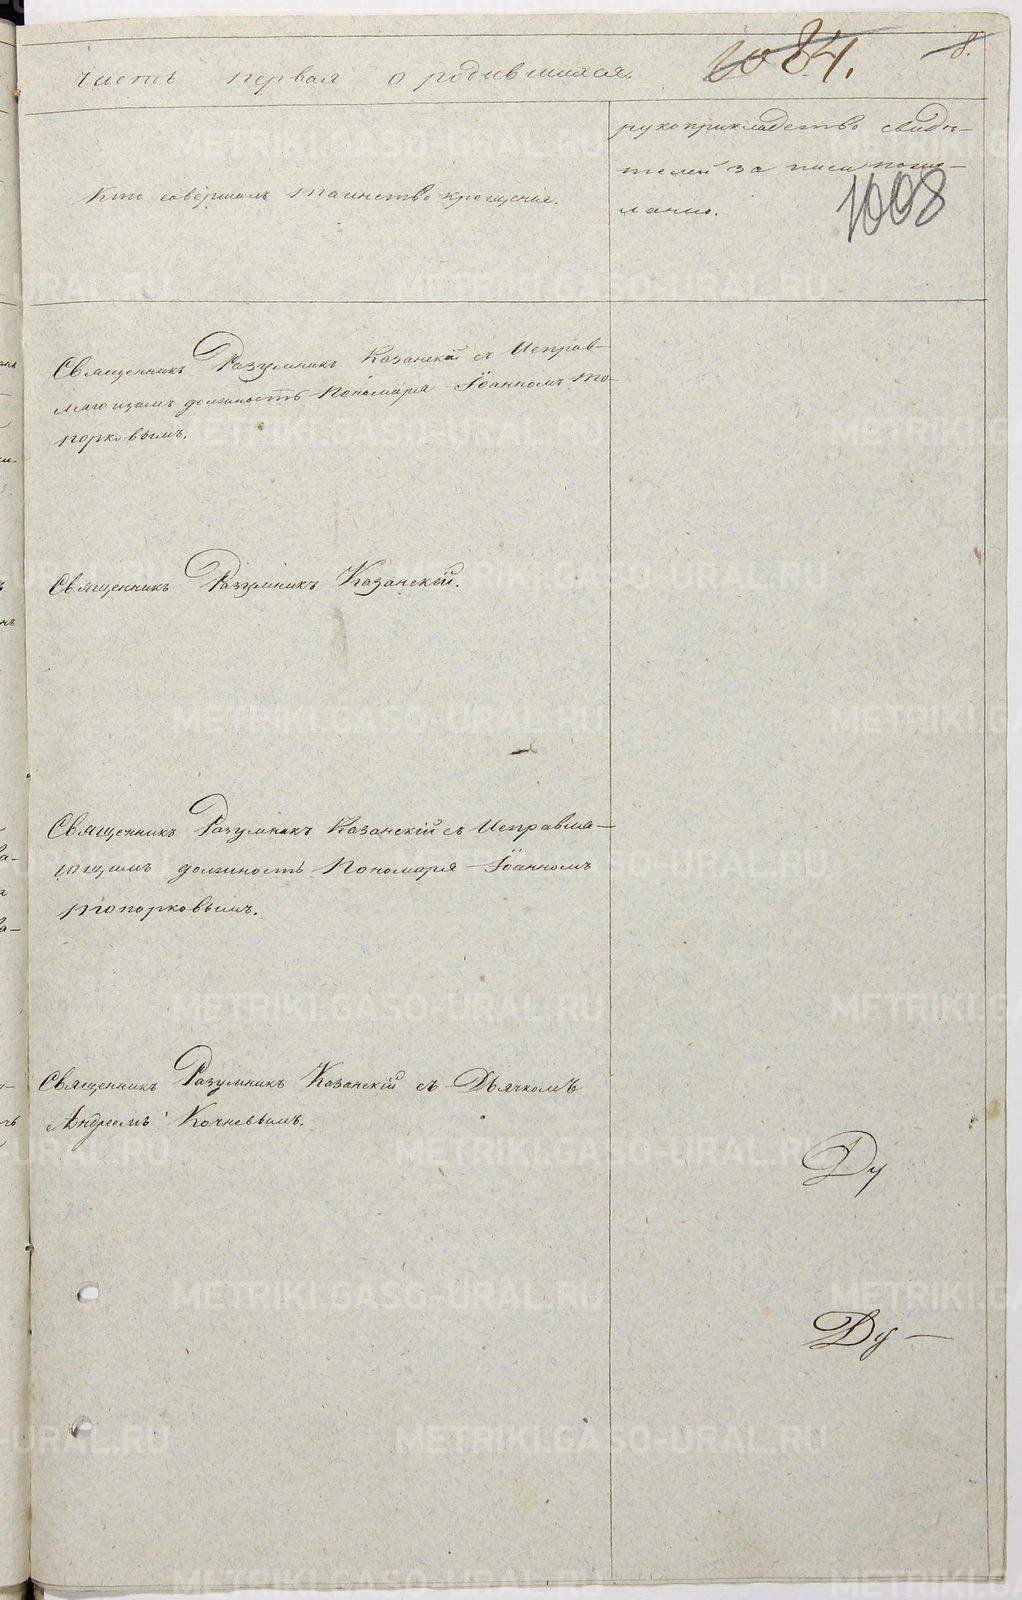 часть первая о родившихся.
1084.
8.
Кто совершалъ таинство крещенія.
рукоприкладство свидѣ-
телей за писи поже-
ланію.
1008
Священникъ Разумникъ Казанскій съ Исправ-
ляющимъ должность Пономаря Іоанномъ То-
порковымъ.
Священникъ Разумникъ Казанскій.
Священникъ Разумникъ Казанскій съ Исправля-
ющимъ должность Пономаря Іоанномъ
Топорковымъ.
Священникъ Разумникъ Казанскій съ Дьячкомъ
Андреемъ Кочневымъ.
Ду
Ду —
METRIKI.GASO-URAL.RU